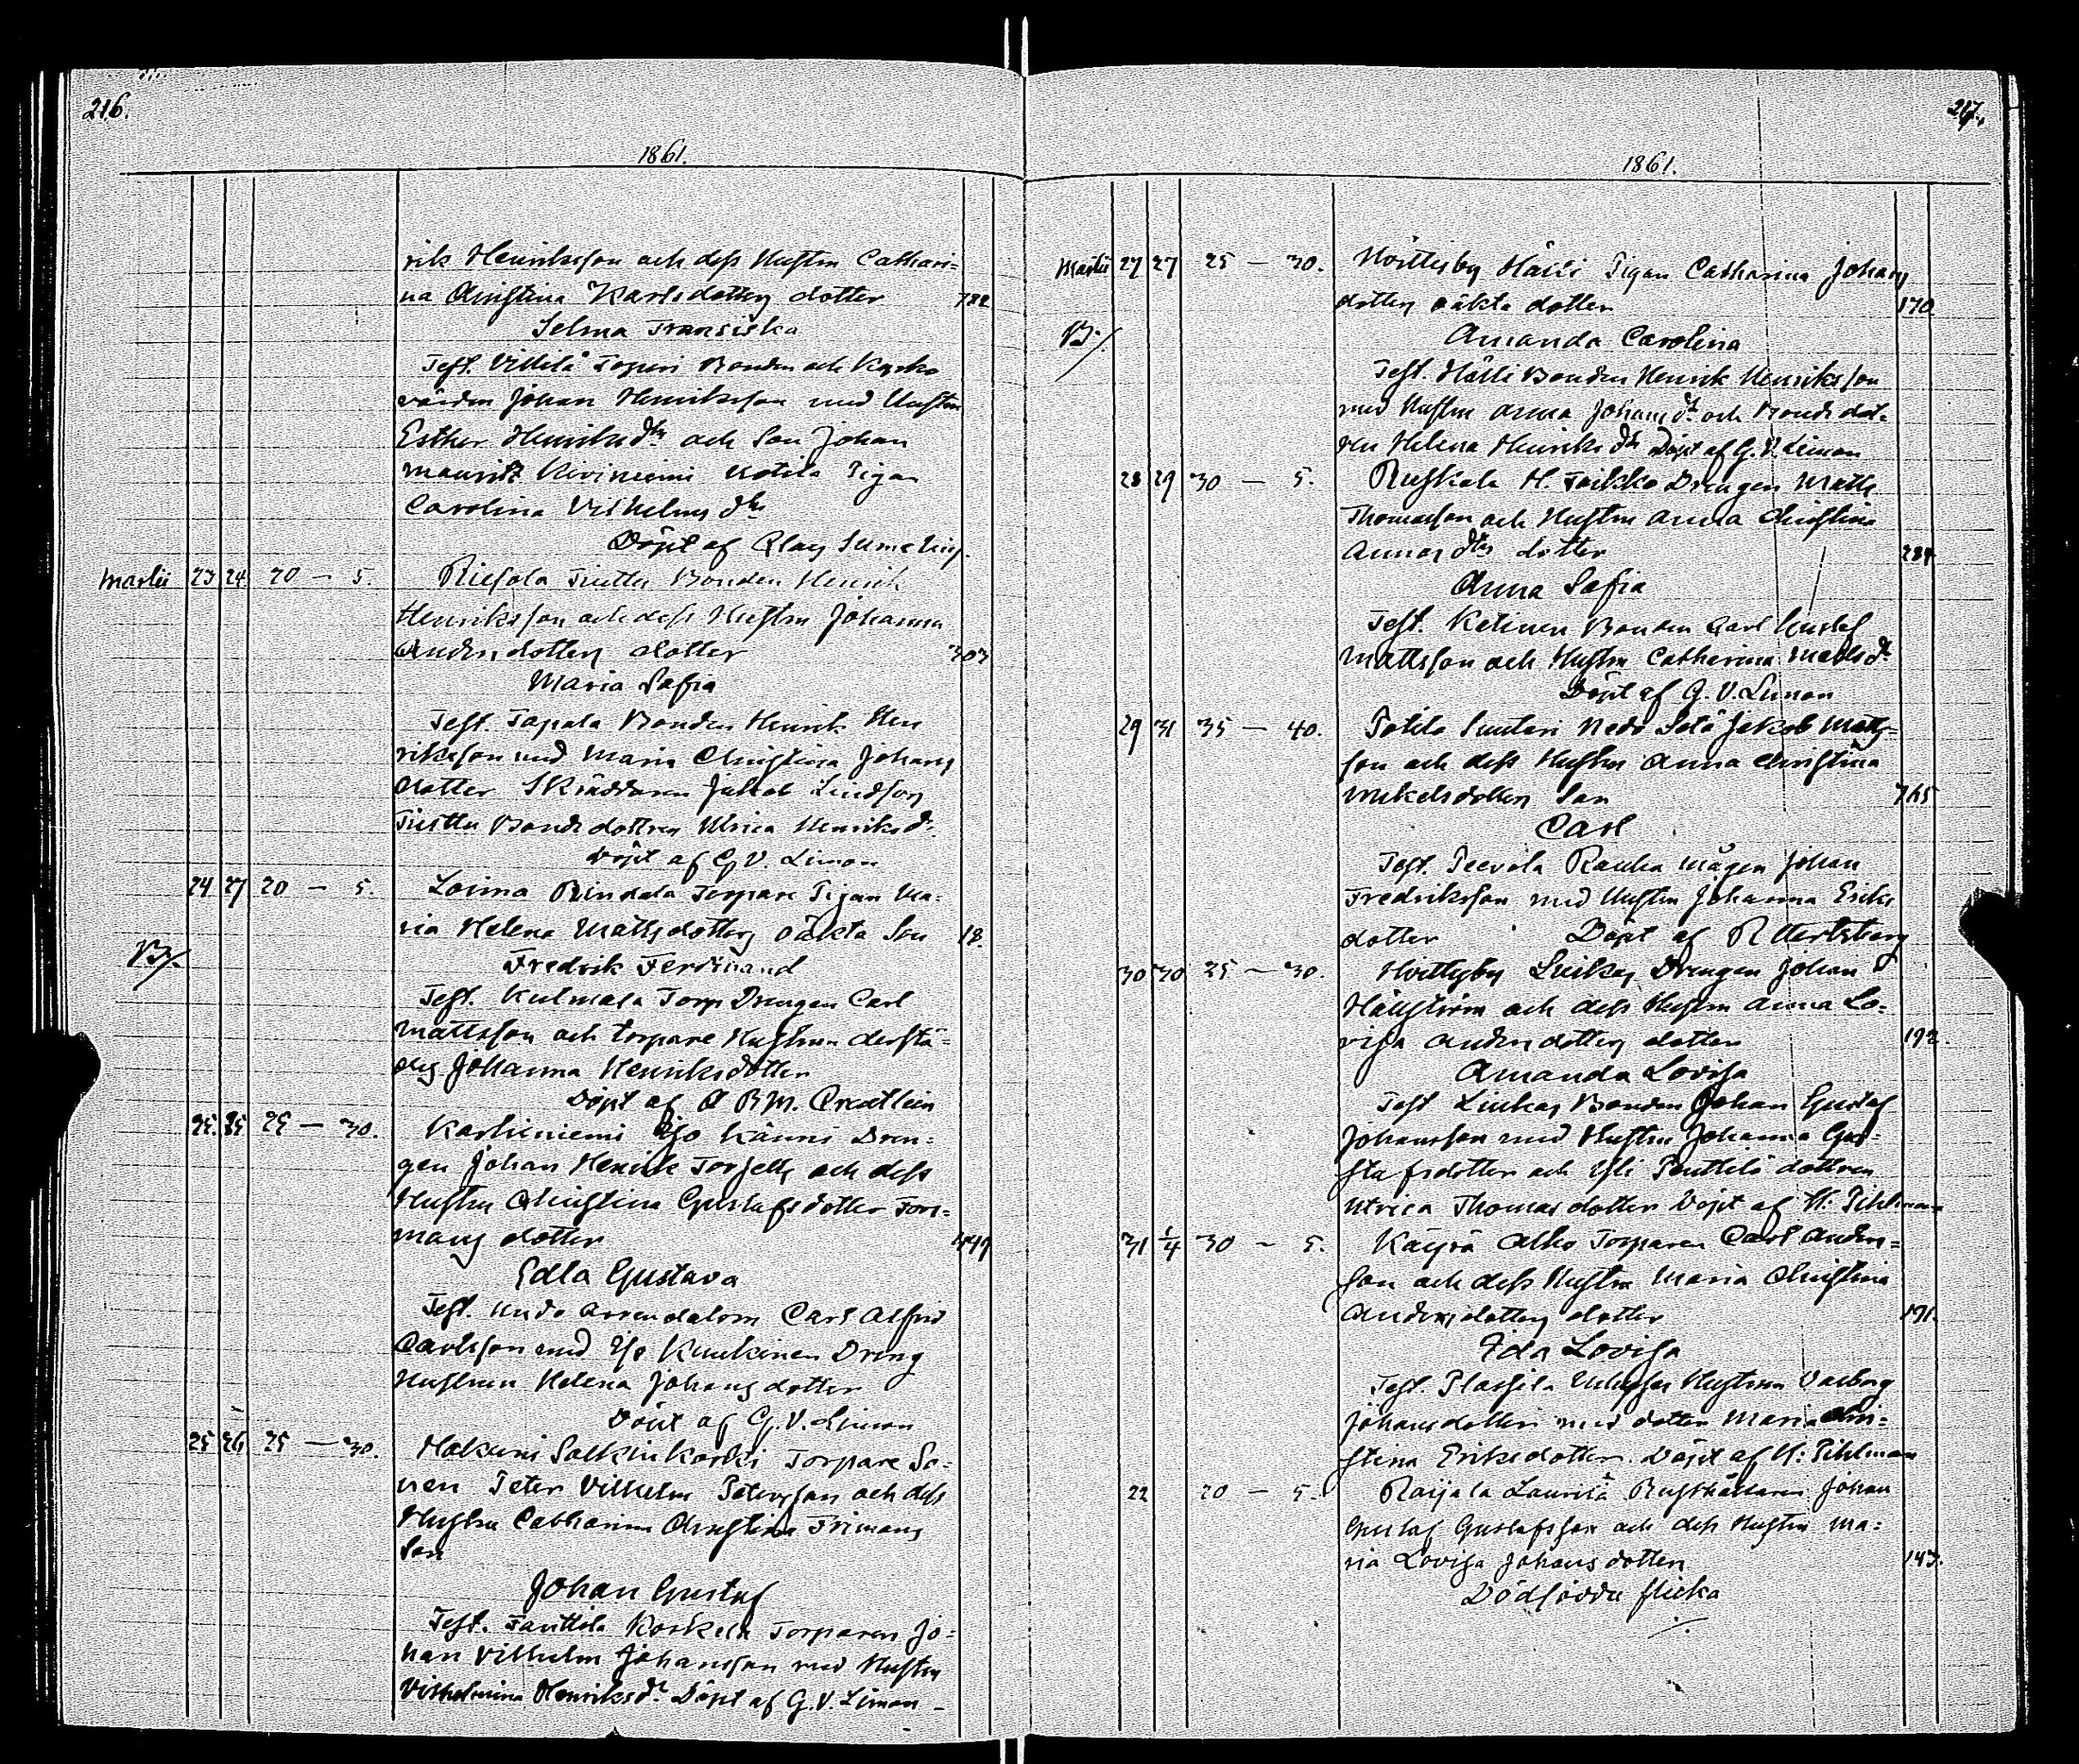 216.
1861.
rik Henriksson och dess Hustru Cathari=
na Christina Karlsdotters dotter 722
Selma Fransiska
Test. Villilä Bonden och Kyrko
värden Johan Henriksson med Hustru
Esther Henriks dtr och Son Johan
Maurits Kiviniemi Kotila Pigan
Carolina Vilhelms dtr
Döpt af Clas Sumelius.
Martii 23 24 20 — 5. Riesola Bonden Henrik
Henriksson och dess Hustru Johanna
Andersdotters dotter 303
Maria Sofia
Test. Tapala Bonden Henrik Hen
riksson med Maria Christina Johans
dotter Skräddaren Jakob Lindson
Bondedottren Ulrica Henriks d.
Döpt af G. V. Limon
24 27 20 — 5. Loima Rindala Torpare Pigan Ma=
ria Helena Mattsdotters oäkta Son 18.
B/.
Fredrik Ferdinand
Test. Kulmala Torp Drengen Carl
Mattsson och torpare Hustrun derstä=
des Johanna Henriksdotter
Döpt af A B M. Creutlein
25. 25 25 — 30. Karhiniemi Iso Känni Dren=
gen Johan Henrik och dess
Hustru Christina Gustafsdotter Fors=
mans dotter 449
Edla Gustava
Test. Arrendatorn Carl Alfrid
Carlsson med Iso Kuukinen Dreng
Hustrun Helena Johansdotter
Döpt af G. V. Limon
25 26 25 — 30. Makuni Salklukoski Torpare So=
nen Peter Vilhelm Petersson och dess
Hustru Catharina Christina Frimans
Son
Johan Gustaf
Test. Fanttila Koskela Torparen Jo=
han Vilhelm Johansson med Hustru
Vilhelmina Henriksdr Döpt af G. V. Limon –
217.
1861.
Martii 27 27 25 — 30. Hälli Pigan Catharina Johans
dotters oäkta dotter 170
B/.
Amanda Carolina
Test. Hälli Bonden Henrik Henriksson
med Hustru Anna Johans dr och Bonde dot=
ren Helena Henriks dtr Döpt af G. V. Limon
28 29 30 — 5. Ruskala H. Drengen Matts
Thomasson och Hustru Anna Christina
Annas dtrs dotter 284
Anna Sofia
Test. Ketinen Bonden Carl Gustaf
Mattsson och Hustru Catharina Mattsdr
Döpt af G. V. Limon
29 31 35 — 40. Potila Suutari Jakob Matts=
son och dess Hustru Anna Christina
Mikelsdotters Son 765
Carl
Test. Peevola Rauha Mågen Johan
Fredriksson med Hustru Johanna Eriks
dotter Döpt af R Hertzberg
30 30 25 — 30. Hvittisby Drengen Johan
Hällström och dess Hustru Anna Lo=
visa Andersdotters dotter 192.
Amanda Lovisa
Test Bonden Johan Gustaf
Johansson med Hustru Johanna Gus=
stafsdotter och Yli Penttilä dottren
Ulrica Thomasdotter Döpt af H. Pihlman
31 1/4 30 — 5. Käyrä Alho Torparen Carl Anders=
son och dess Hustru Maria Christina
Andersdotters dotter 191.
Ida Lovisa
Test. Hustrun Valborg
Johansdotter med dotter Maria Chri=
stina Eriksdotter. Döpt af H. Pihlman
22 20 — 5. Raijala Laurila Rusthållaren Johan
Gustaf Gustafsson och dess Hustru Ma=
ria Lovisa Johansdotter 143.
Dödfödde flicka